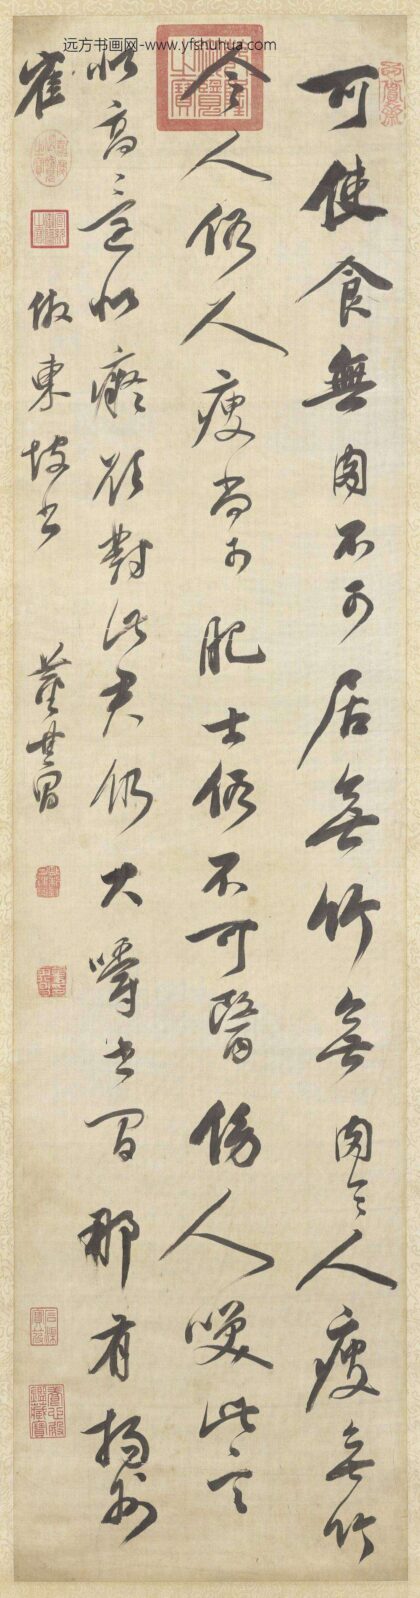 远方书画网-www.yfshuhua.com
可使食無肉不可居無竹無肉令人瘦無竹
令人俗人瘦尚可肥士俗不可醫傍人笑此言
似高還似癡對此君仍大嚼世間那有揚州
隺 倣東坡書 董其昌